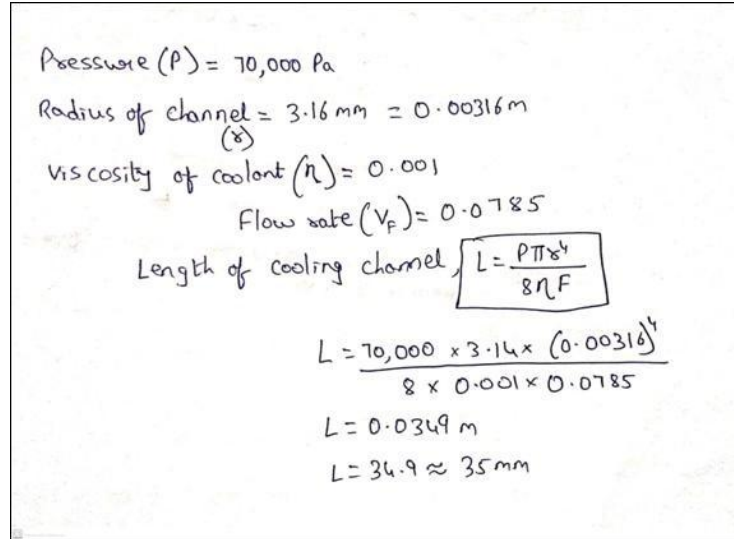 Pressure (P) = 70,000 Pa
Radius of channel = 3.16 mm = 0.00316 m
(r)
Viscosity of coolant (η) = 0.001
Flow rate (V_F) = 0.0785
Length of cooling channel, L = Pπr⁴ / 8ηF
L = 70,000 x 3.14 x (0.00316)⁴ / 8 x 0.001 x 0.0785
L = 0.0349 m
L = 34.9 ≈ 35 mm